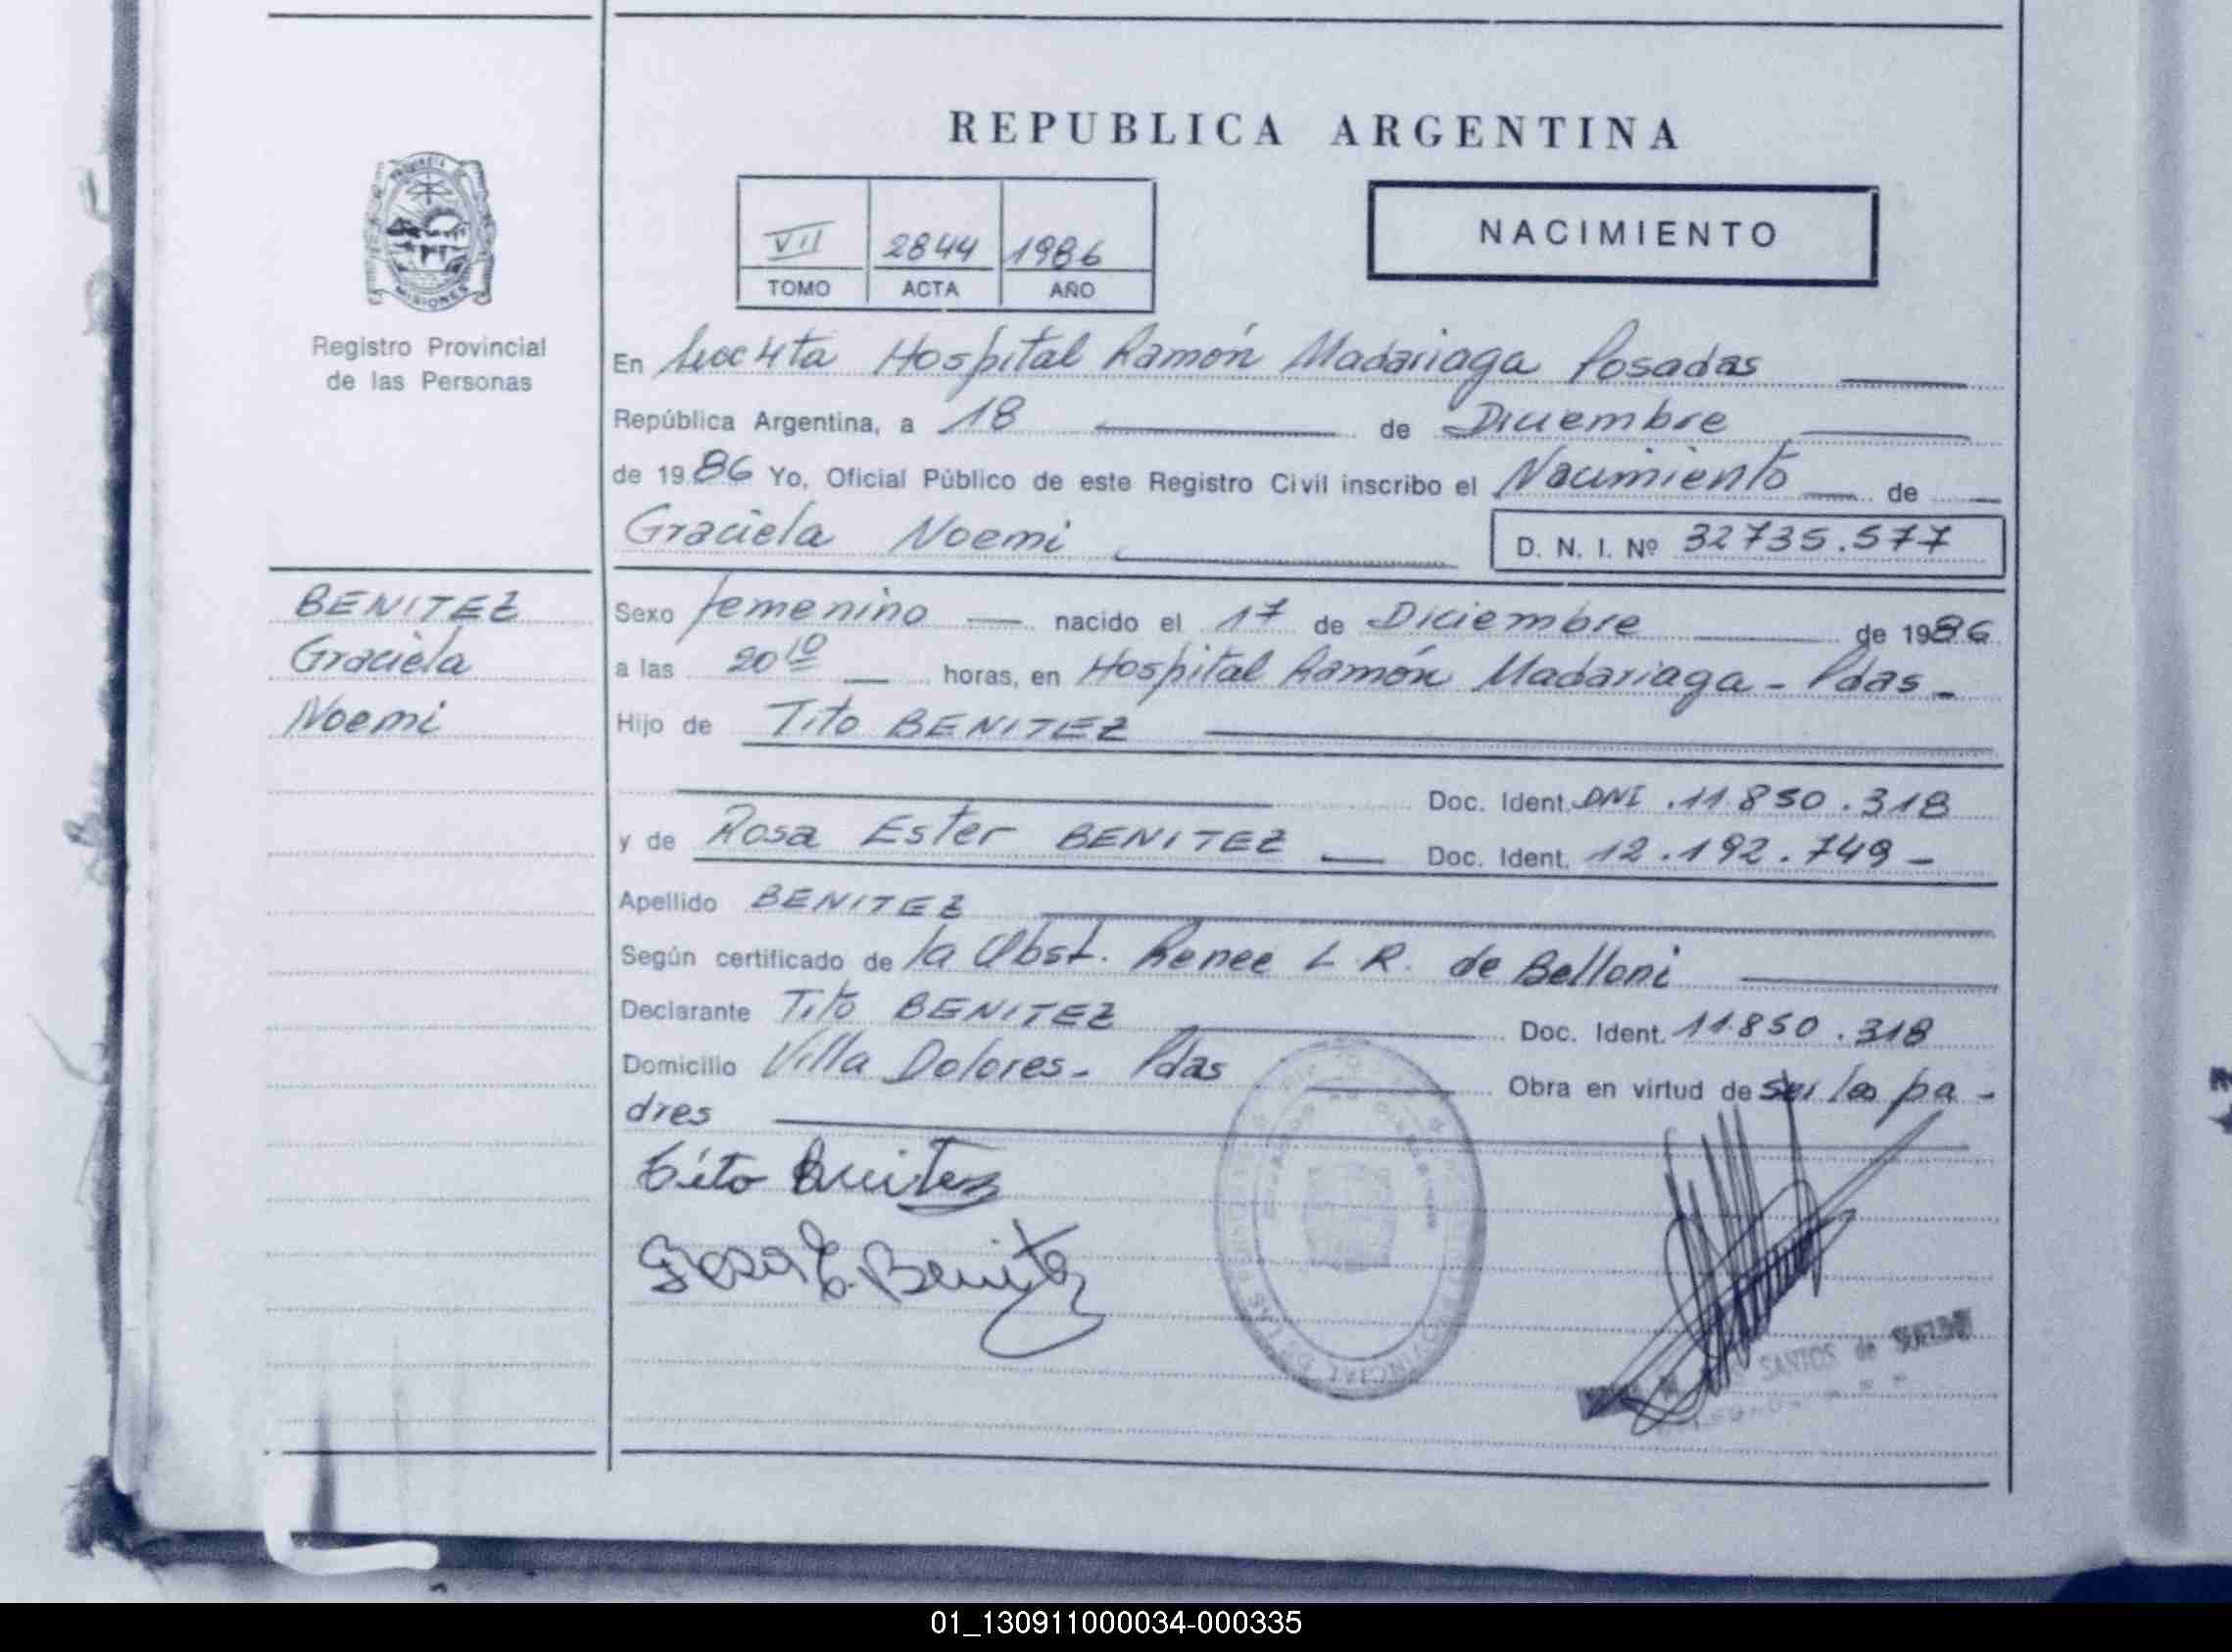 REPUBLICA ARGENTINA
PROVINCIA
MISIONES
Registro Provincial
de las Personas
VII 2844 1986
TOMO ACTA AÑO
NACIMIENTO
En Secc 4ta Hospital Ramón Madariaga Posadas
República Argentina, a 18 de Diciembre
de 1986 Yo, Oficial Público de este Registro Civil inscribo el Nacimiento de
Graciela Noemi D. N. I. Nº 32735.577
BENITEZ
Graciela
Noemi
Sexo femenino nacido el 17 de Diciembre de 1986
a las 20 10 horas, en Hospital Ramón Madariaga - Pdas -
Hijo de Tito BENITEZ
Doc. Ident. DNI .11.850.318
y de Rosa Ester BENITEZ Doc. Ident. 12.192.749 -
Apellido BENITEZ
Según certificado de la Obst. Renee L.R. de Belloni
Declarante Tito BENITEZ Doc. Ident. 11.850.318
Domicilio Villa Dolores - Pdas Obra en virtud de ser los pa -
dres
Tito Benitez
Rosa E. Benitez
PROVINCIAL DE LAS
SANTOS de
01_130911000034-000335